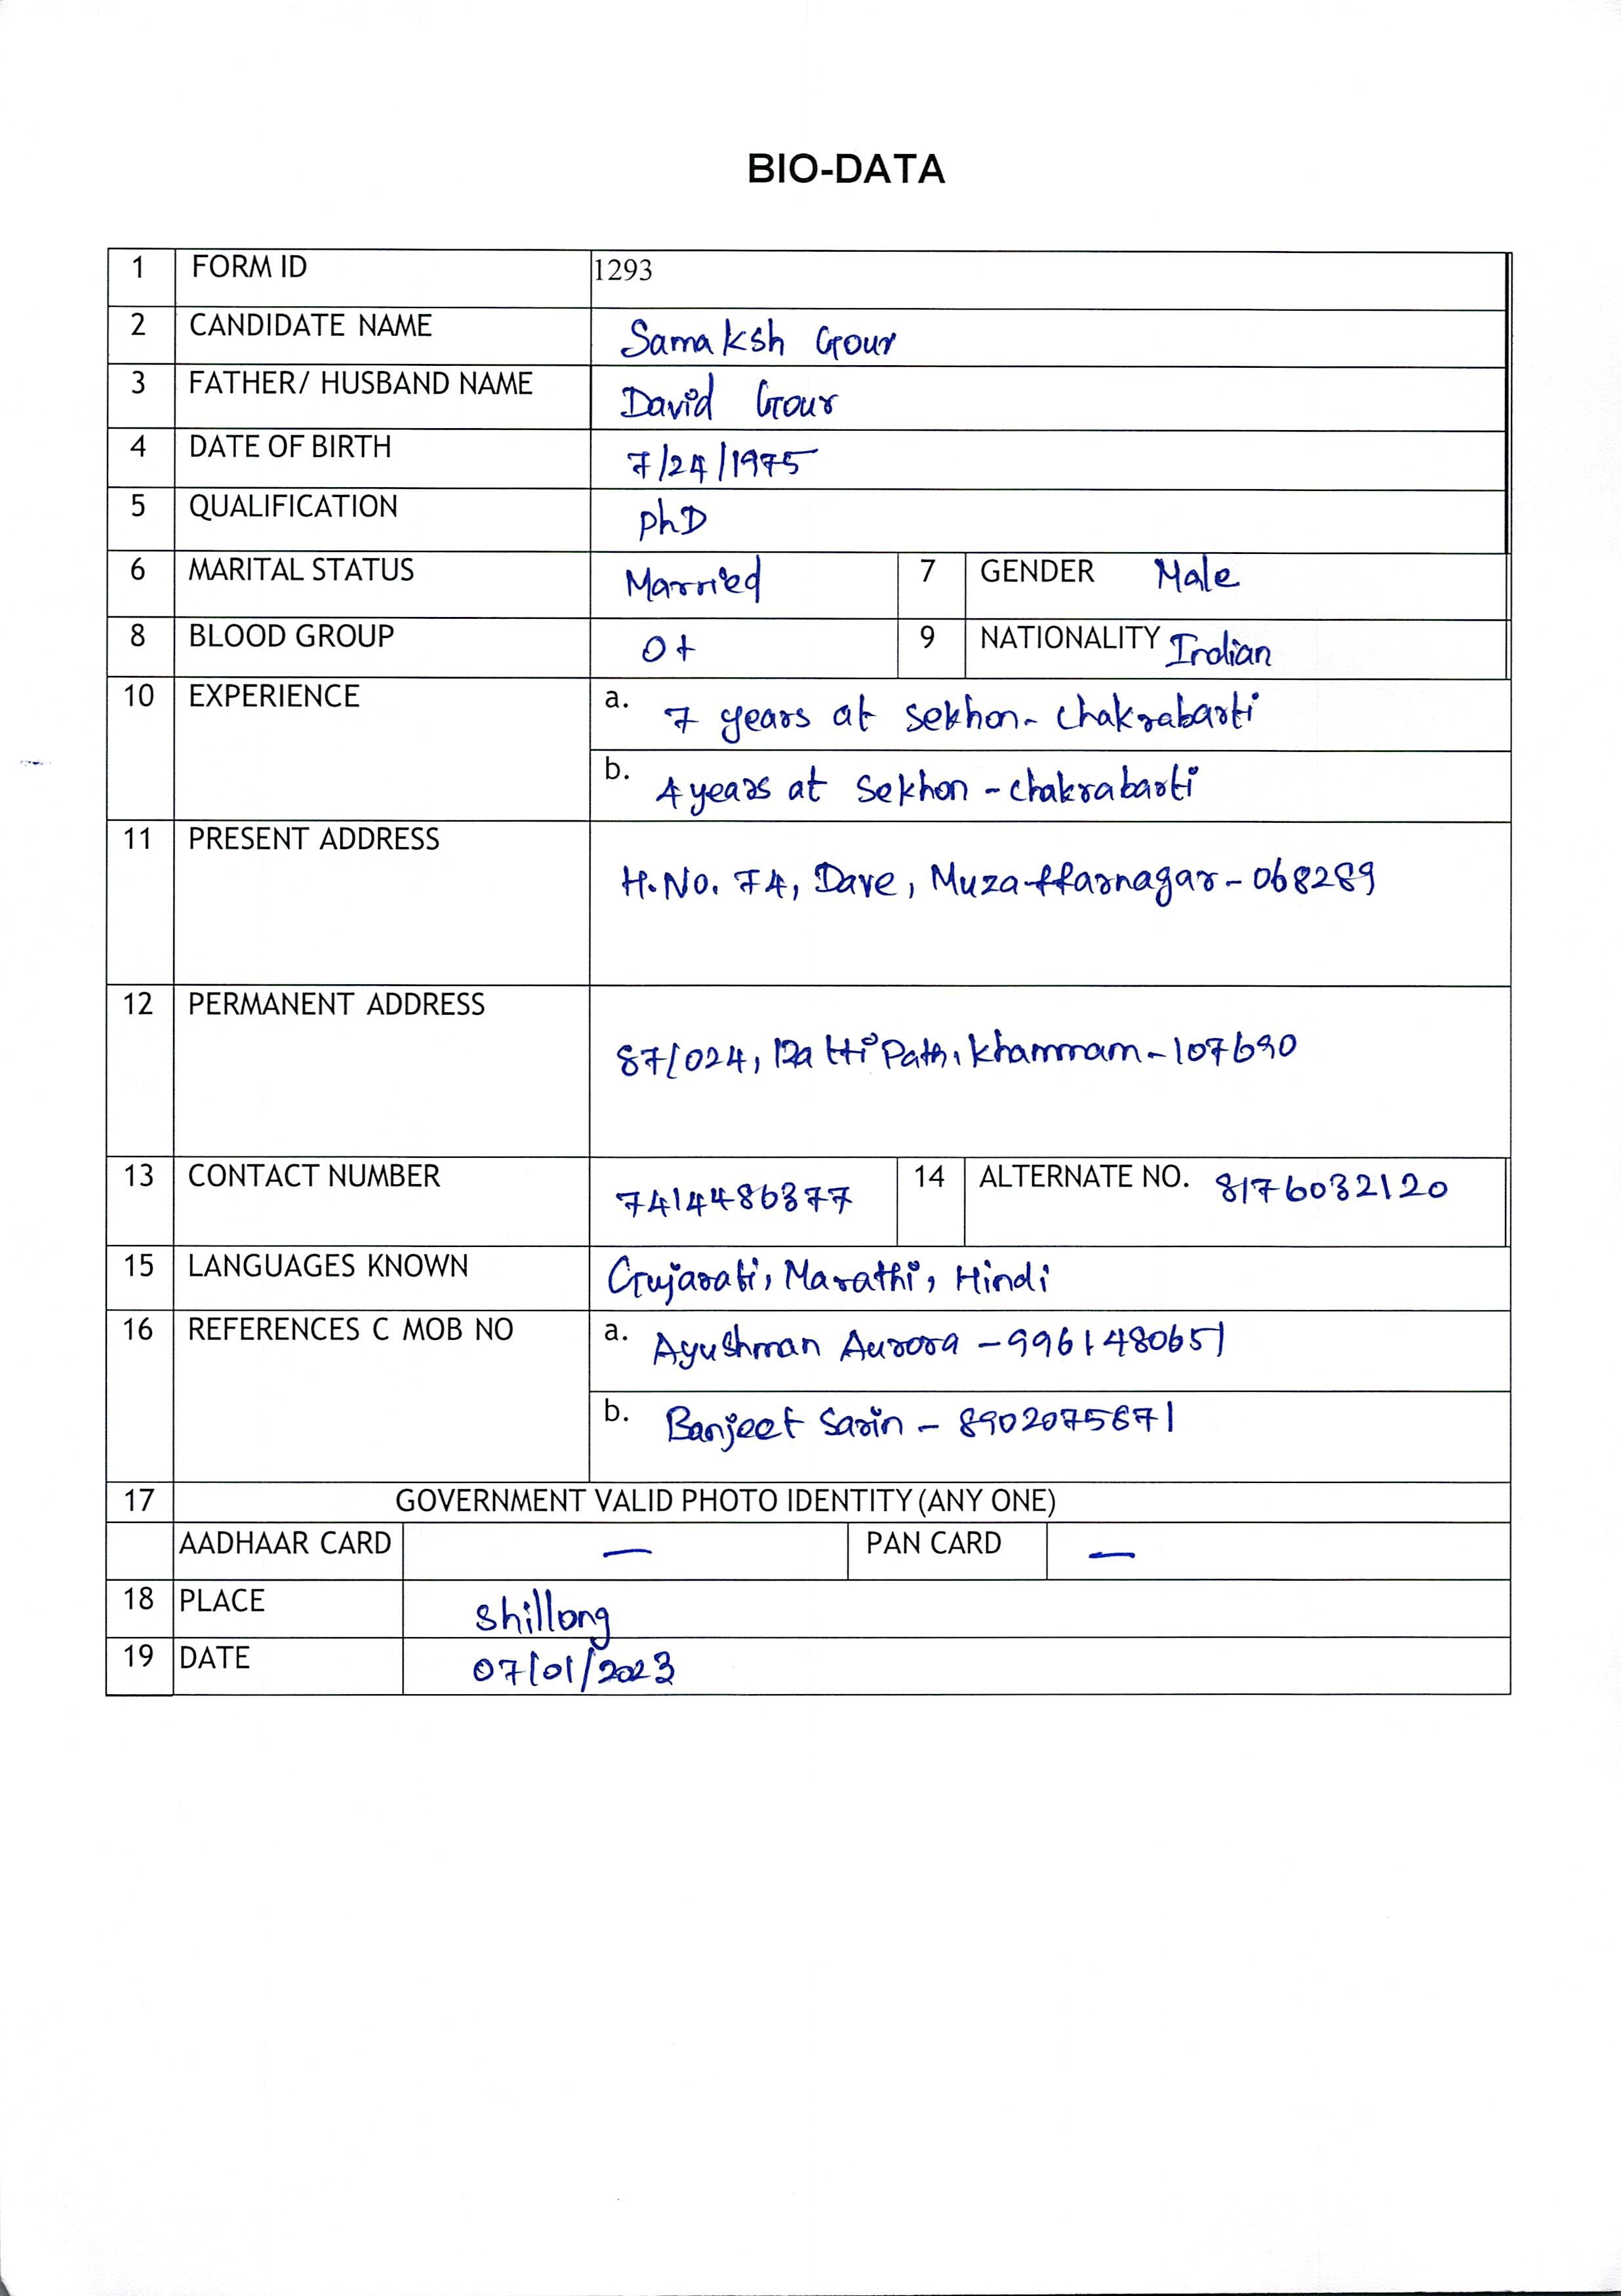 BIO-DATA
1 FORM ID 1293
2 CANDIDATE NAME Samaksh Gour
3 FATHER/ HUSBAND NAME David Gour
4 DATE OF BIRTH 7/24/1975
5 QUALIFICATION PhD
6 MARITAL STATUS Married 7 GENDER Male
8 BLOOD GROUP O+ 9 NATIONALITY Indian
10 EXPERIENCE a. 7 years at Sekhon-Chakrabarti
b. 4 years at Sekhon-Chakrabarti
11 PRESENT ADDRESS
H.No. 74, Dave, Muzaffarnagar-068289
12 PERMANENT ADDRESS
87/024, Path, Khammam-107690
13 CONTACT NUMBER 7414486377 14 ALTERNATE NO. 8176032120
15 LANGUAGES KNOWN Gujarati, Marathi, Hindi
16 REFERENCES C MOB NO a. Ayushman Aurora - 9961480651
b. Banjeet Sarin - 8902075671
17 GOVERNMENT VALID PHOTO IDENTITY (ANY ONE)
AADHAAR CARD — PAN CARD —
18 PLACE Shillong
19 DATE 07/01/2023